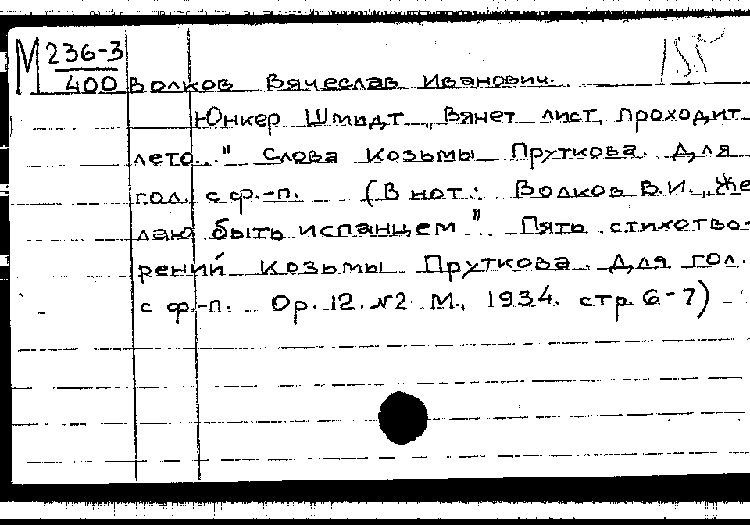 М 236-3
400 Волков Вячеслав Иванович.
Юнкер Шмидт „Вянет лист, проходит
лето..." Слова Козьмы Пруткова. Для
гол. с ф.-п. (В нот.: Волков В.И. „Же
лаю быть испанцем". Пять стихотво-
рений Козьмы Пруткова. Для гол.
с ф.-п. Ор. 12. №2 М., 1934. стр. 6-7)